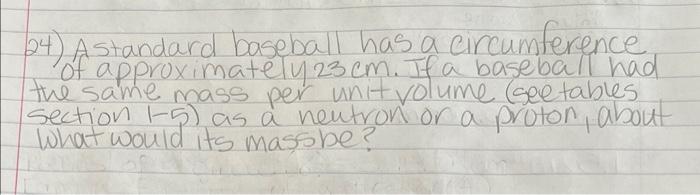 24) A standard baseball has a circumference
of approximately 23 cm. If a baseball had
the same mass per unit volume (see tables
section 1-5) as a neutron or a proton, about
what would its mass be?